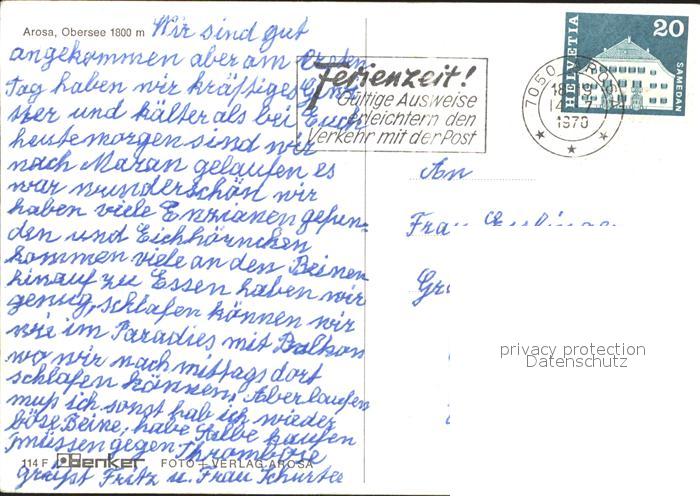 Arosa, Obersee 1800 m
Wir sind gut
angekommen aber am Ersten
Tag haben wir kräftiges Gewit-
ter und kälter als bei Euch
heute morgen sind wir
nach Maran gelaufen es
war wunderschön wir
haben viele Enzianen gefun-
den und Eichhörnchen
kommen viele an den Beinen
hinauf zu Essen haben wir
genug, schlafen können wir
wie im Paradies mit Balkon
wo wir nachmittags dort
schlafen können, Aber laufen
muß ich sonst hab ich wieder
böse Beine, habe Salbe kaufen
müssen gegen Thrombose
grüßt Fritz u. Frau Schurter
114 F Benker FOTO + VERLAG AROSA
Ferienzeit!
Gültige Ausweise
erleichtern den
Verkehr mit der Post
7050 AROSA
1970
HELVETIA
20
SAMEDAN
An
Frau
privacy protection
Datenschutz